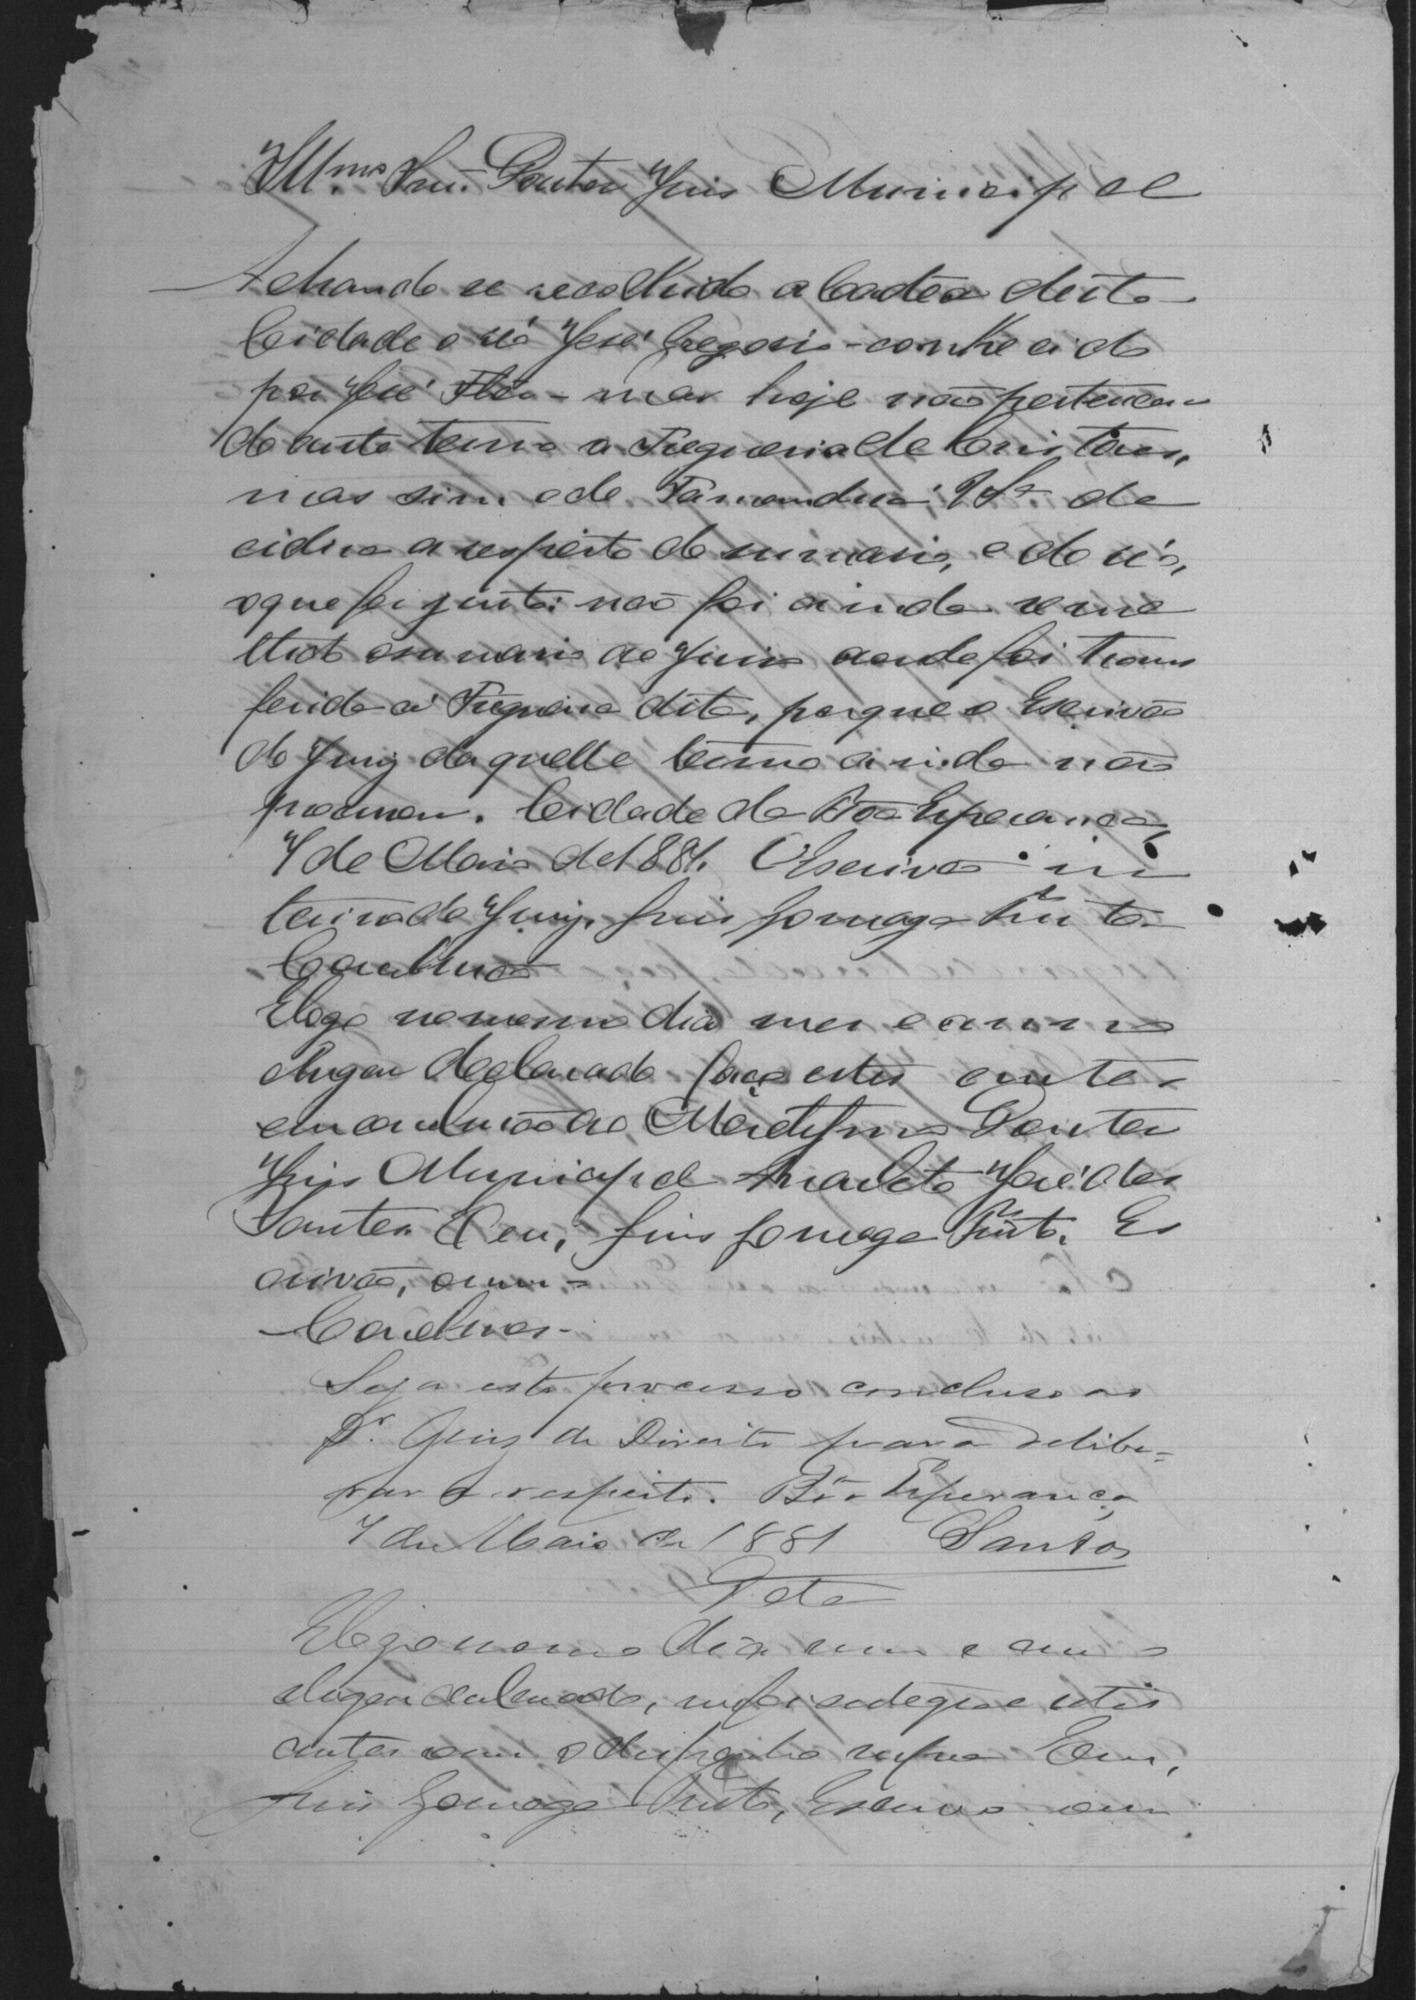 Illmo Snr. Doutor Juis Municipal
Achando se recolhido a Cadêa desta
Cidade o réo José Gregorio - conhecido
por José - mas hoje não pertencen
do a este termo a Freguesia de Cristaes,
mas sim o de Tamanduá, V. Sa. de
cidira a respeito do sumario, e do réo,
o que for justo: não foi ainda reme
ttido o sumario ao Juiso aonde foi trans
ferida a Freguesia dita, porque o Escrivão
do Jury daquelle termo ainda não
procurou. Cidade da Bôa Esperança,
7 de Maio de 1881. O Escrivão in
terino do Jury, Luis Gonzaga Pinto
Conclusão
E logo no mesmo dia mes e anno
e lugar declarado faço estes autos
em conclusão ao Meretissimo Doutor
Juis Municipal Anacleto José dos
Santos. E eu, Luis Gonzaga Pinto, Es
crivão, escrevi -
Conclusos -
Seja este processo concluso ao
Dr. Juiz de Direito para delibe-
rar a respeito. Bôa Esperança
7 de Maio de 1881 Santos
Data
E logo no mesmo dia mes e anno
e lugar declarado, me foi entregue estes
autos com o despacho supra. E eu,
Luis Gonzaga Pinto, Escrivão, escrevi